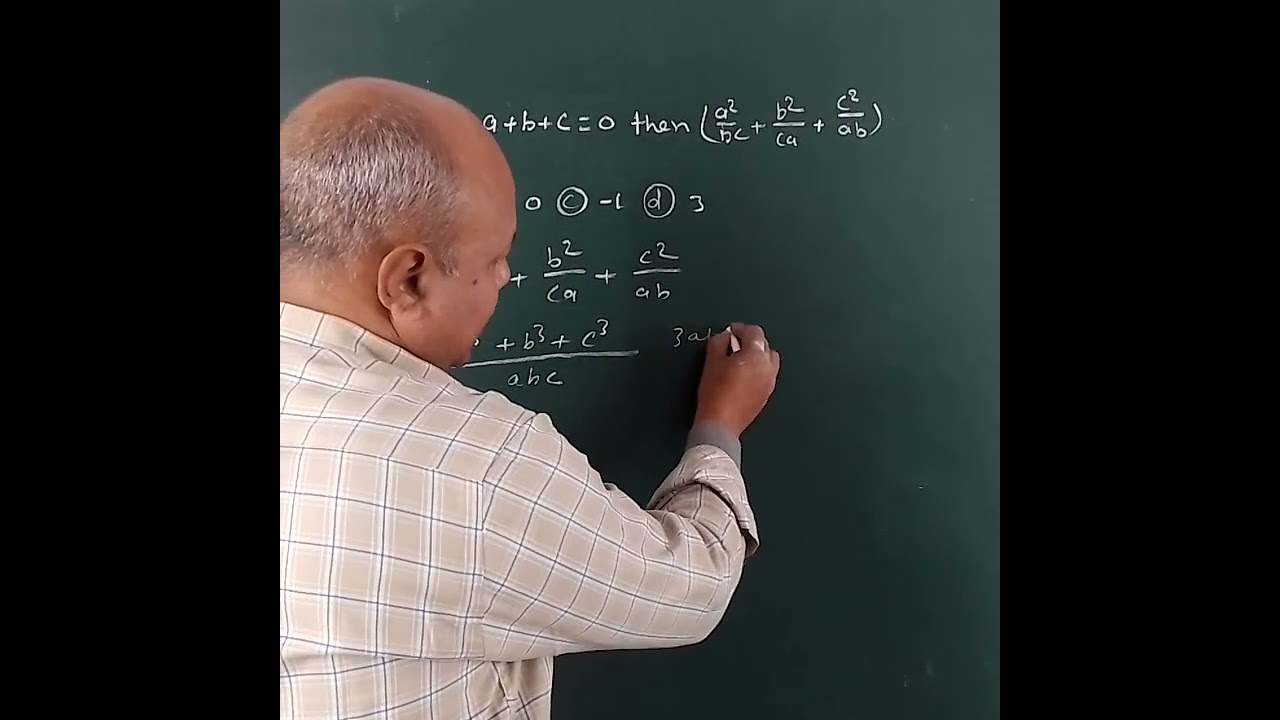 a+b+c=0 then (a²/bc + b²/ca + c²/ab)
0 ⓒ -1 ⓓ 3
+ b²/ca + c²/ab
+ b³ + c³ / abc 3a